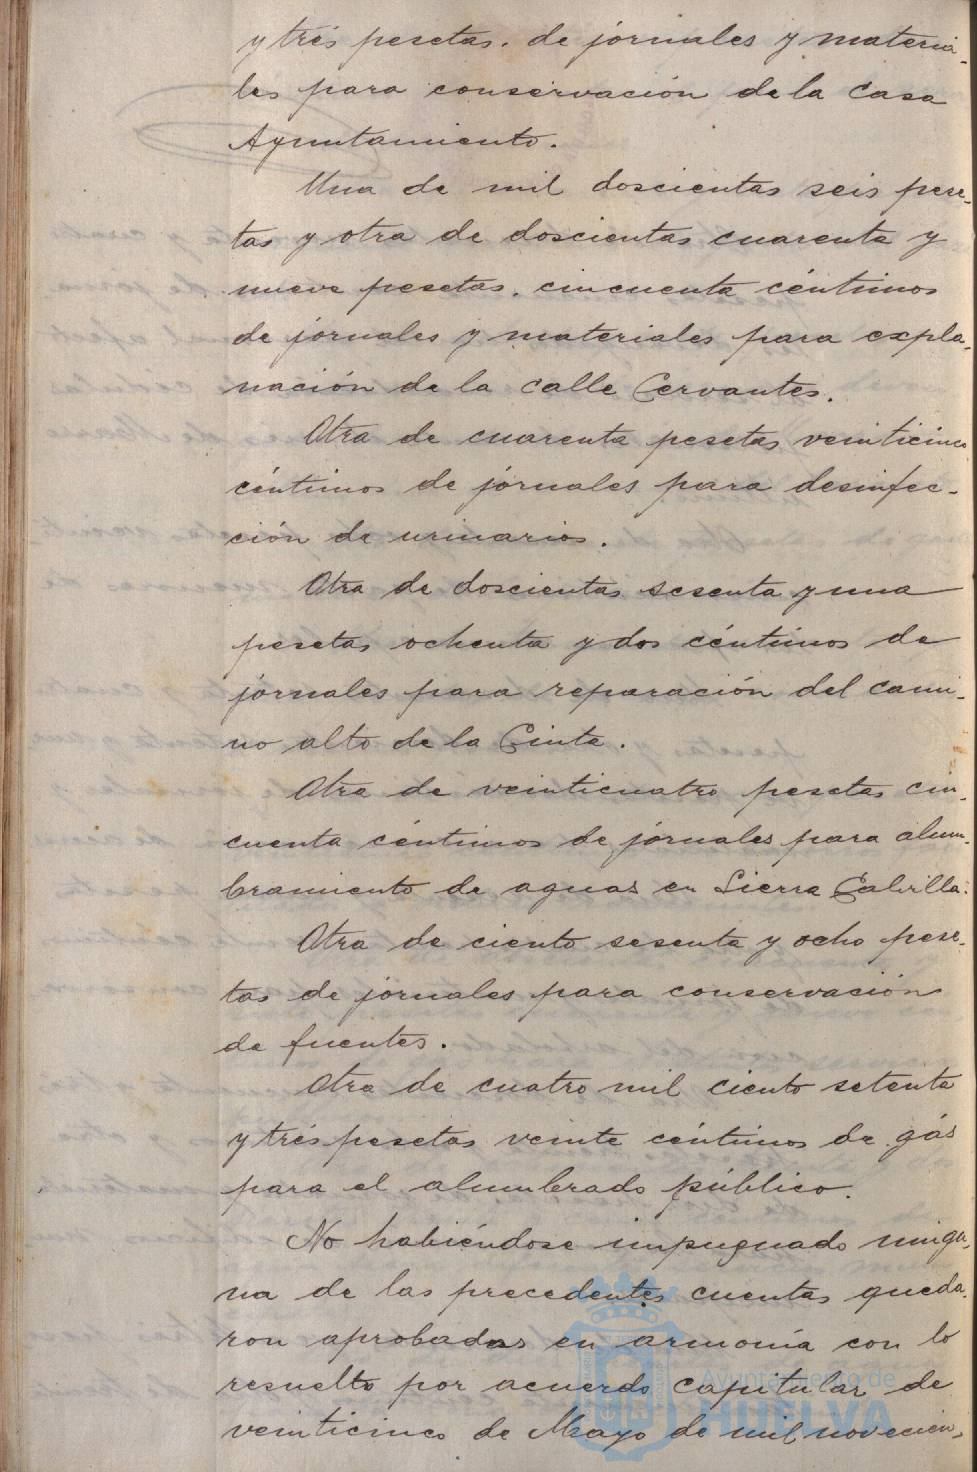 y trés pesetas. de jórnales y materia-
les para conservación de la Casa
Ayuntamiento.
Una de mil doscientas seis pese-
tas y otra de doscientas cuarenta y
nueve pesetas. cincuenta céntimos
de jornales y materiales para expla-
nación de la calle Cervantes.
Otra de cuarenta pesetas veinticinco
céntimos de jórnales para desinfec-
ción de urinarios.
Otra de doscientas sesenta y una
pesetas ochenta y dos céntimos de
jórnales para reparación del cami-
no alto de la Cinta.
Otra de veinticuatro pesetas cin-
cuenta céntimos de jórnales para alum-
bramiento de aguas en Sierra Cabrilla.
Otra de ciento sesenta y ocho pese-
tas de jórnales para conservación
de fuentes.
Otra de cuatro mil ciento setenta
y trés pesetas veinte céntimos de gás
para el alumbrado público.
No habiéndose impugnado ningu-
na de las precedentes cuentas queda-
ron aprobadas en armonía con lo
resuelto por acuerdo capitular de
veinticinco de Mayo de mil novecien-
Ayuntamiento de
HUELVA